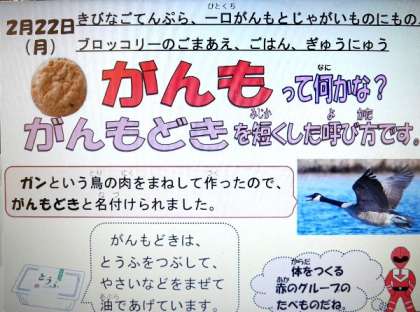 2月22日
(月)
きびなごてんぷら、一口がんもとじゃがいものにもの
ブロッコリーのごまあえ、ごはん、ぎゅうにゅう
がんもって何かな?
がんもどきを短くした呼び方です。
ガンという鳥の肉をまねして作ったので、
がんもどきと名付けられました。
がんもどきは、
とうふをつぶして、
やさいなどをまぜて
油であげています。
とうふ
体をつくる
赤のグループの
たべものだね。